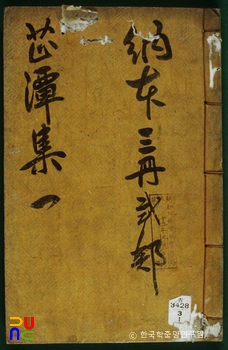 納本三冊弐部
芷潭集 一
3428
3
1
© 한국학중앙연구원